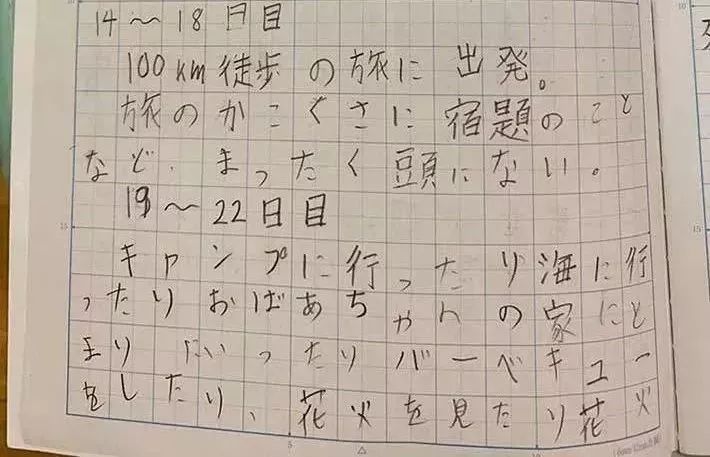 14〜18日目
100km徒歩の旅に出発。
旅のかこくさに宿題のこと
など、まったく頭にない。
19〜22日目
キャンプに行ったり海に行
ったりおばあちゃんの家にと
まりにいったりバーベキュー
をしたり、花火を見たり花火